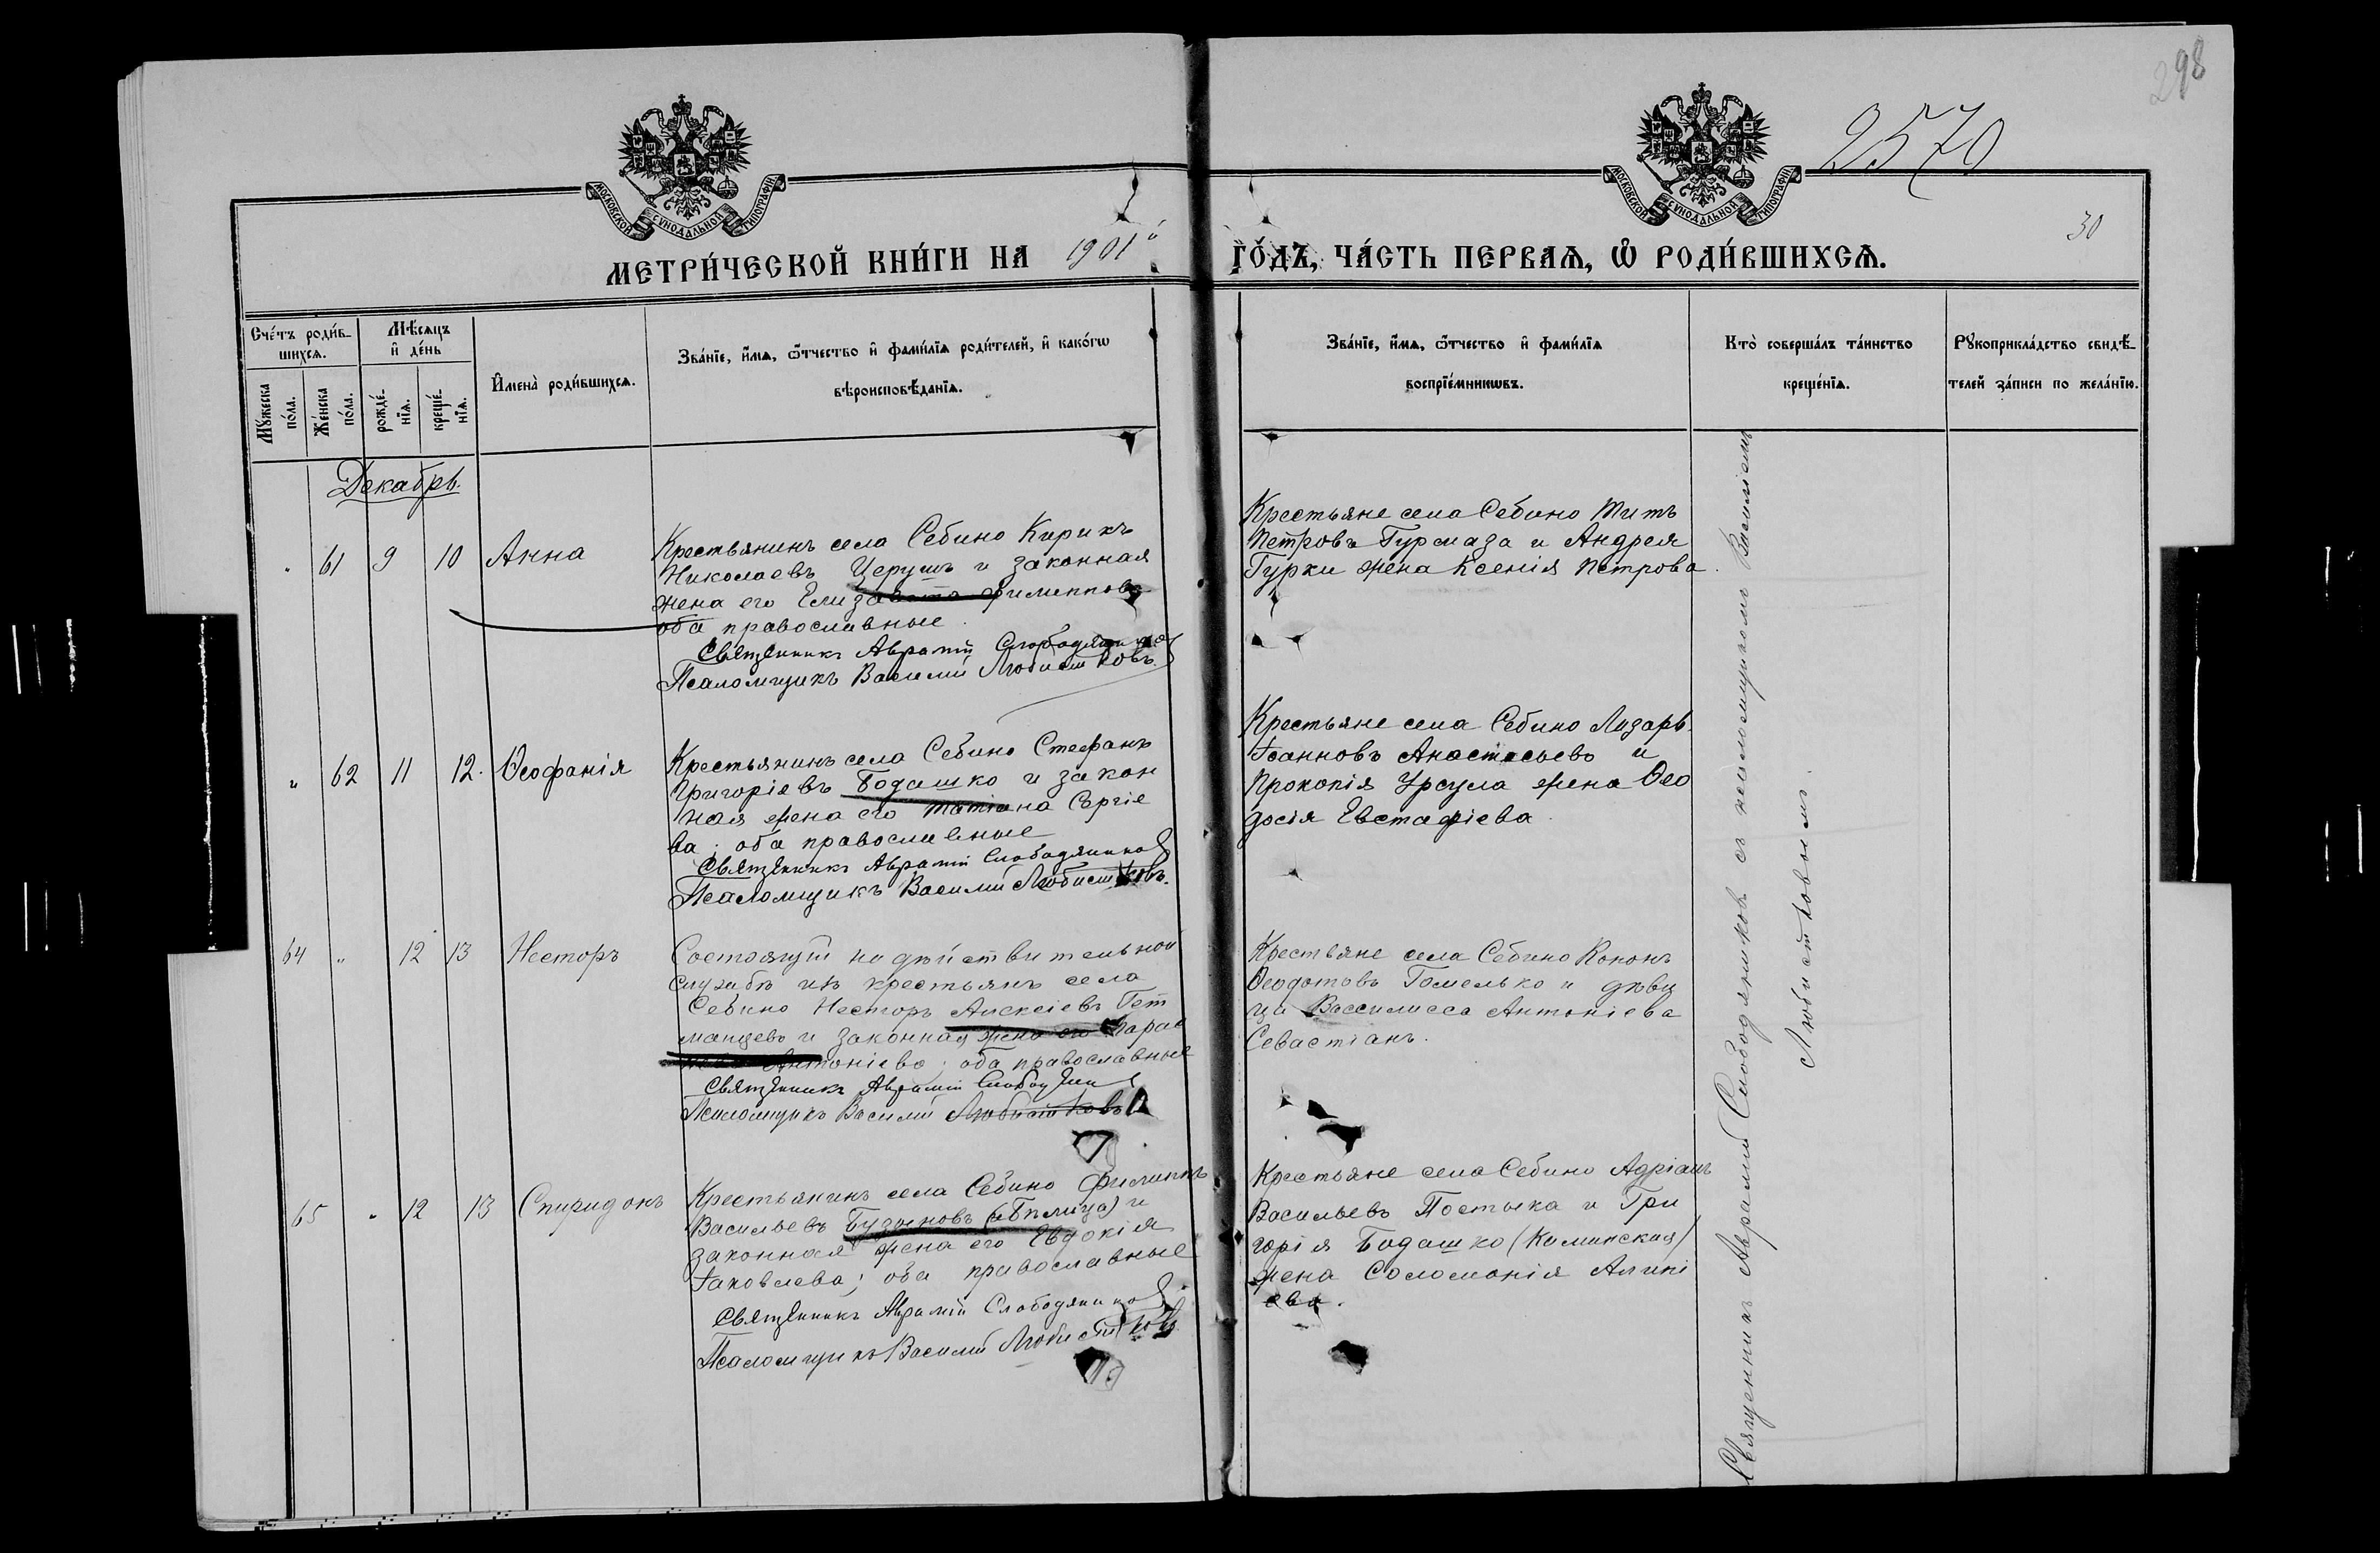 298
2570
30
МОСКОВСКОЙ СѴНОДАЛЬНОЙ ТИПОГРАФІИ
МОСКОВСКОЙ СѴНОДАЛЬНОЙ ТИПОГРАФІИ
МЕТРИ́ЧЕСКОЙ КНИ́ГИ НА 1901й ГО́ДЪ, ЧА́СТЬ ПЕРВАѦ, Ѿ РОДИ́ВШИХСѦ.
Сче́тъ роди́в-
шихсѧ.
Мꙋжеска
по́ла.
Же́нска
по́ла.
Мѣ́сяцъ
и҆ де́нь
рожде́-
нїѧ.
креще́-
нїѧ.
И҆мена̀ роди́вшихсѧ.
Зва́нїе, и҆́мѧ, ѻ҆́тчество и҆ фами́лїѧ роди́телей, и҆ како́гѡ
вѣроисповѣ́данїѧ.
Зва́нїе, и҆́мѧ, ѻ҆́тчество и҆ фами́лїѧ
воспрїе́мникѡвъ.
Кто̀ соверша́лъ та́инство
креще́нїѧ.
Рꙋкоприкла́дство свидѣ́-
телей за́писи по жела́нїю.
Декабрь.
" 61 9 10 Анна
Крестьянинъ села Себино Кирикъ
Николаевъ Церушъ и законная
жена его Елизавета Филиппова
оба православные.
Священникъ Аврамій
Псаломщикъ Василій Любистковъ
Крестьяне села Себино Титъ
Петровъ Гурмаза и Андрея
Гурки жена Ксенія Петрова.
" 62 11 12. Ѳеофанія
Крестьянинъ села Себино Стефанъ
Григоріевъ Бодашко и закон
ная жена его Татіана Сергіе
ва; оба православные
Священникъ Аврамій
Псаломщикъ Василій Любистковъ.
Крестьяне села Себино Лазарь
Іоанновъ Анастасьевъ и
Прокопія Урсула жена Ѳео
досія Евстафіева.
64 " 12 13 Несторъ
Состоящій на дѣйствительной
службѣ изъ крестьянъ села
Себино Несторъ Алексіевъ Гет
манцевъ и законная жена его Парас
Антоніева; оба православные
Священникъ Аврамій
Псаломщикъ Василій Любистковъ
Крестьяне села Себино Кононъ
Ѳеодотовъ Гомелько и дѣви
ца Вассилисса Антоніева
Севастіанъ.
65 " 12 13 Спиридонъ
Крестьянинъ села Себино Филиппъ
Васильевъ Бузыновъ и
законная жена его Евдокія
Іаковлева; оба православные
Священникъ Аврамій
Псаломщикъ Василій Любистковъ
Крестьяне села Себино Адріанъ
Васильевъ Постыка и Гри
горія Бодашко (Каминская)
жена Соломонія Алипі
ева.
Священникъ Аврамій съ псаломщикомъ Василіемъ
Любистковымъ.